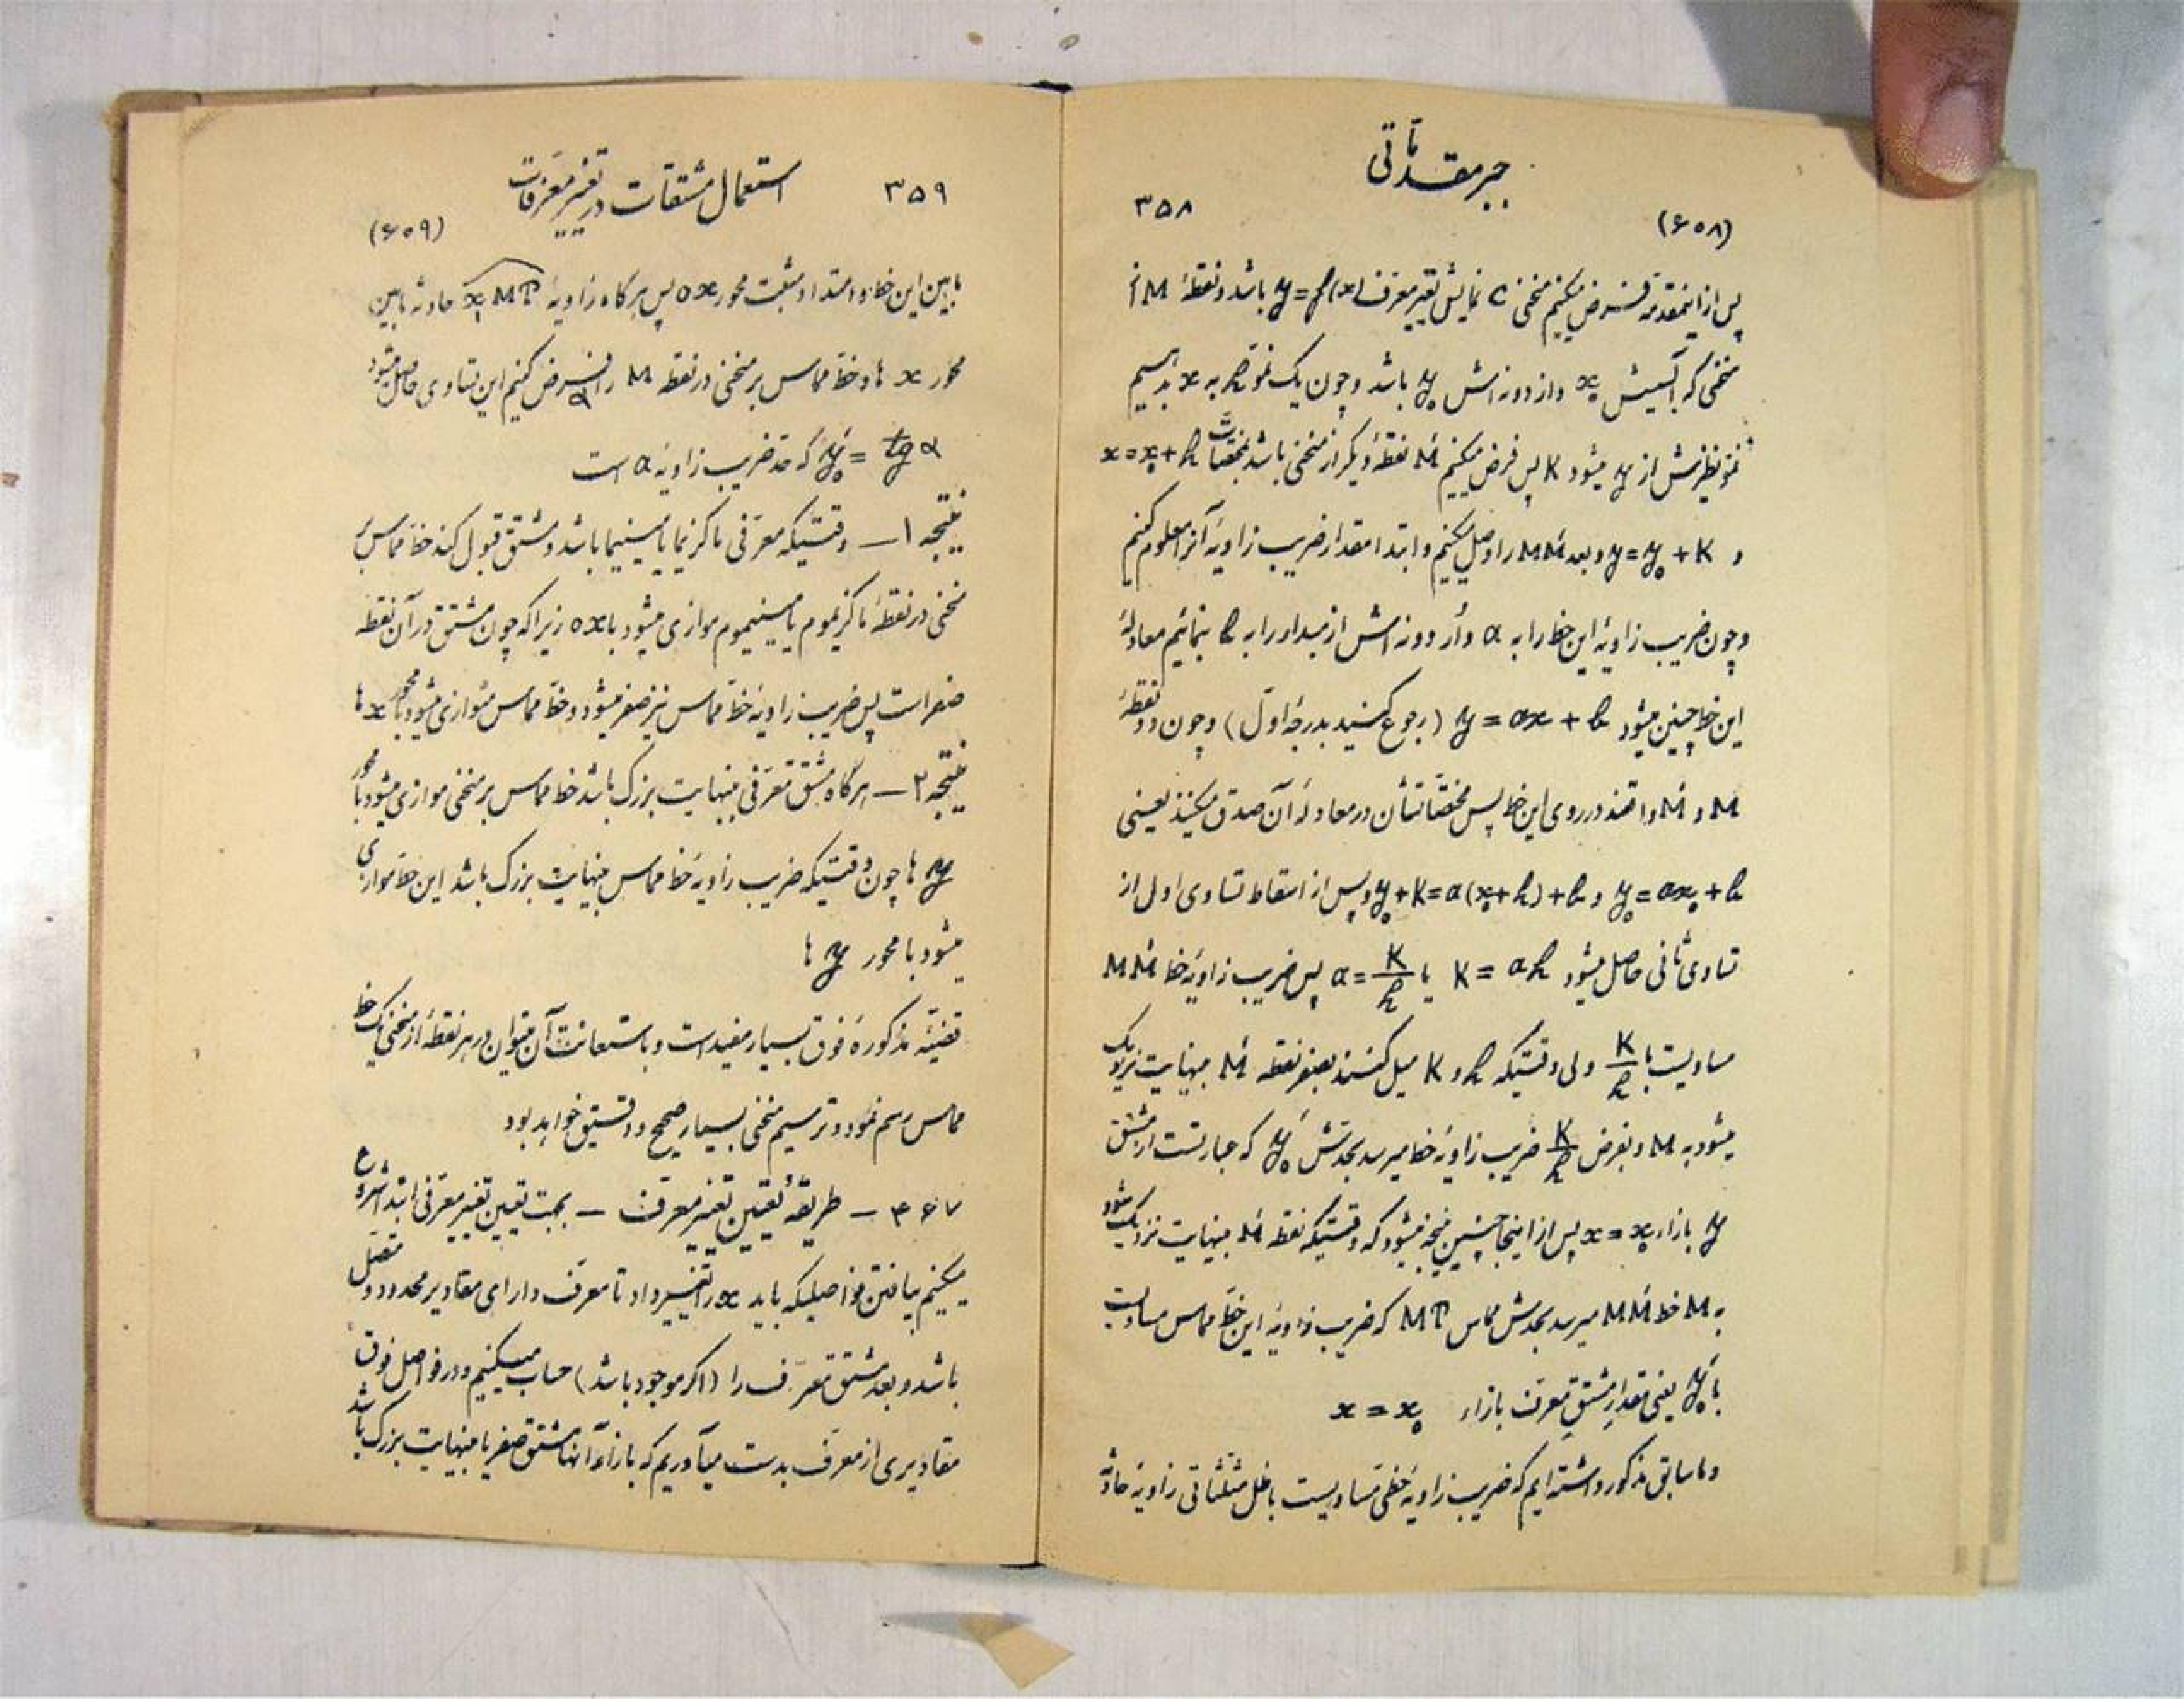 جبر مقدماتی
۳۵۸ (۶۰۸)
پس از اینمقدمه فرض میکنیم منحنی C نمایش تغییر معرف y = f(x) باشد و نقطهٔ M از
منحنی که آبسیسش x₀ و اردونه اش y₀ باشد و چون یک نمو h به x₀ بدهیم
نمو نظیرش از y میشود K پس فرض میکنیم M′ نقطهٔ دیگر از منحنی باشد بمختصات x = x₀ + h
و y = y₀ + K و بعد MM′ را وصل میکنیم و ابتدا مقدار ضریب زاویهٔ آنرا معلوم کنیم
و چون ضریب زاویهٔ این خط را به a و اردونه اش از مبداء را به b بنمائیم معادلهٔ
این خط چنین میشود y = ax + b (رجوع کنید بدرجهٔ اول) و چون دو نقطهٔ
M و M′ واقعند در روی این خط پس مختصاتشان در معادلهٔ آن صدق میکنند یعنی
y₀ = ax₀ + b و y₀ + K = a(x₀ + h) + b و پس از اسقاط تساوی اول از
تساوی ثانی حاصل میشود K = ah یا a = K/h پس ضریب زاویهٔ خط MM′
مساویست با K/h ولی وقتیکه h و K میل کنند بصفر نقطه M′ بینهایت نزدیک
میشود به M و بفرض K/h ضریب زاویهٔ خط میرسد بحدش y′₀ که عبارتست از مشتق
y بازاء x = x₀ پس از اینجا چنین نتیجه میشود که وقتیکه نقطه M′ بینهایت نزدیک شود
به M خط MM′ میرسد بحدش مماس MT که ضریب زاویهٔ این خط مماس مساویست
با y′₀ یعنی مقدار مشتق معرف بازاء x = x₀
و ما سابق مذکور داشته ایم که ضریب زاویهٔ خطی مساویست با ظل مثلثاتی زاویهٔ حادثه
۳۵۹ استعمال مشتقات در تغییر معرفات
(۶۰۹)
مابین این خط و امتداد مثبت محور ox پس هرگاه زاویهٔ x₁MT حادثه مابین
محور x ها و خط مماس بر منحنی در نقطه M را α فرض کنیم این تساوی حاصل میشود
y′₀ = tg α که حد ضریب زاویهٔ a است
نتیجه ۱ــ وقتیکه معرفی ماکزیما یا مینیما باشد و مشتق قبول کند خط مماس بر
منحنی در نقطهٔ ماکزیموم یا مینیموم موازی میشود با ox زیرا که چون مشتق در آن نقطه
صفر است پس ضریب زاویهٔ خط مماس نیز صفر میشود و خط مماس متوازی میشود با محور x ها
نتیجه ۲ــ هرگاه مشتق معرفی بینهایت بزرگ باشد خط مماس بر منحنی موازی میشود با محور
y ها چون وقتیکه ضریب زاویهٔ خط مماس بینهایت بزرگ باشد این خط موازی
میشود با محور y ها
قضیهٔ مذکورهٔ فوق بسیار مفید است و باستعانت آن میتوان در هر نقطهٔ از منحنی یک خط
مماس رسم نمود و ترسیم منحنی بسیار صحیح و دقیق خواهد بود
۴۶۷ ــ طریقهٔ تعیین تغییر معرف ــ بجهت تعیین تغییر معرفی ابتدا شروع
میکنیم بیافتن فواصلیکه باید x را تغییر داد تا معرف دارای مقادیر محدود و متصل
باشد و بعد مشتق معرف را (اگر موجود باشد) حساب میکنیم و در فواصل فوق
مقادیری از معرف بدست میآوریم که بازاء آنها مشتق صفر یا بینهایت بزرگ باشد